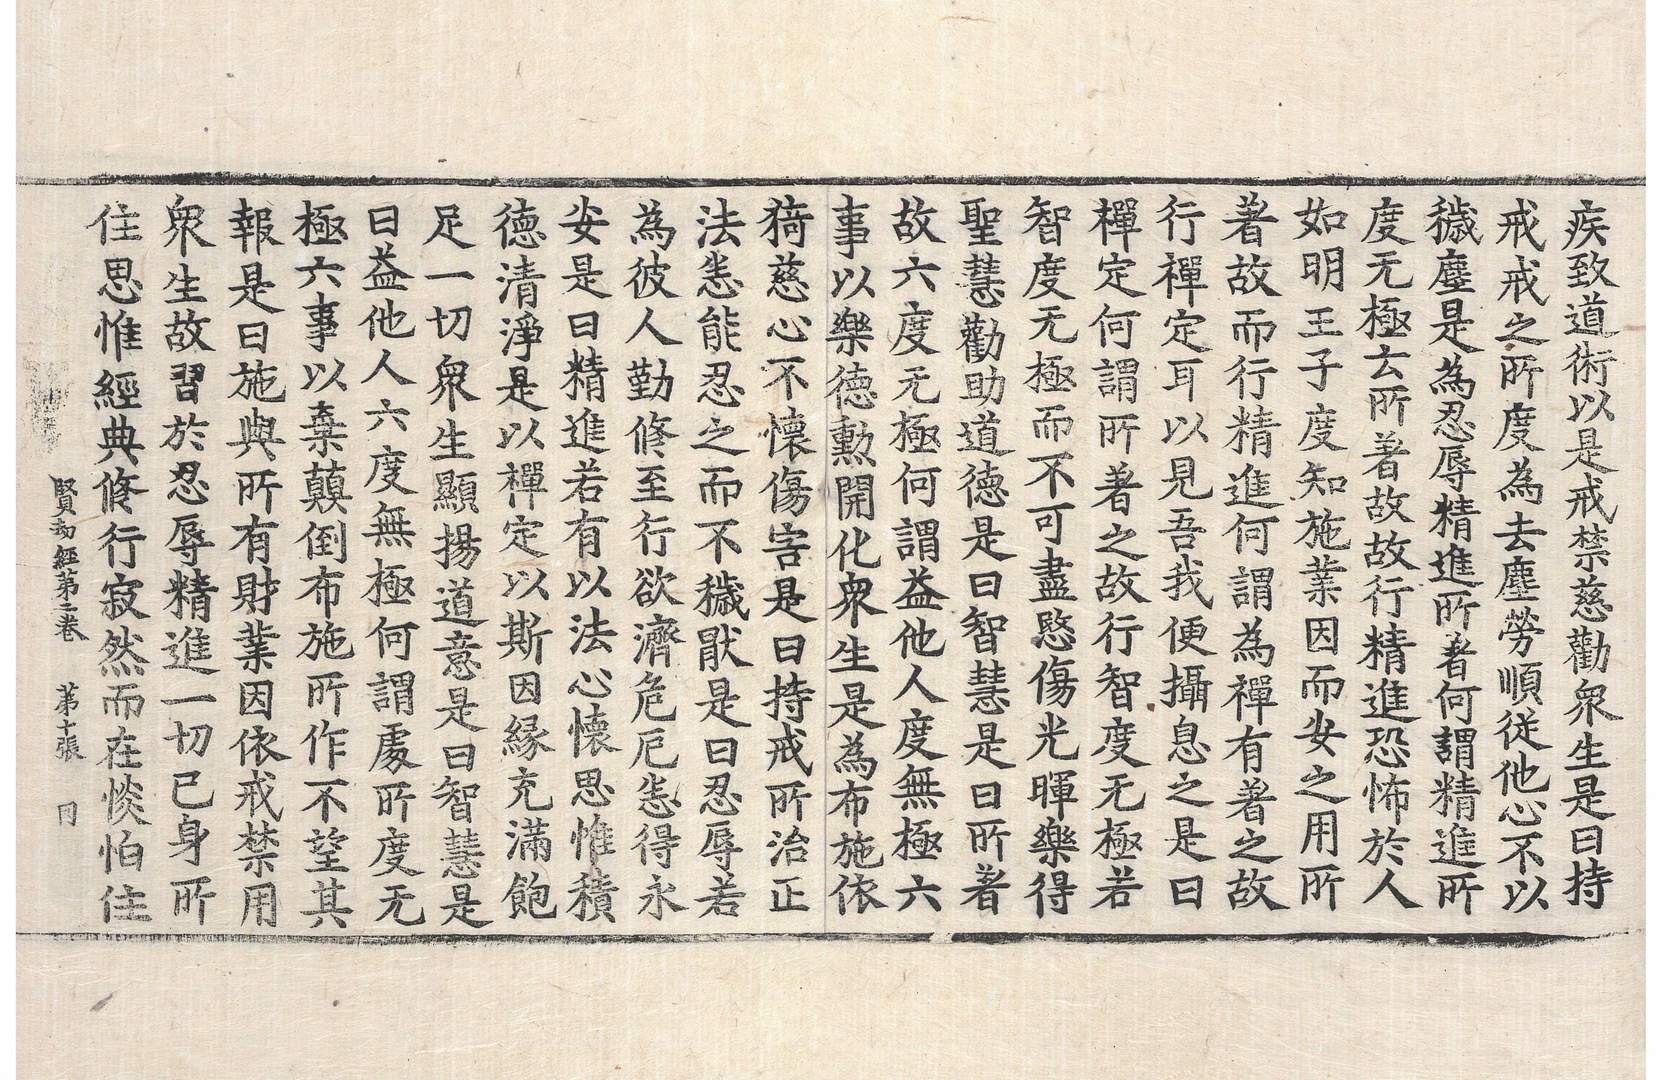 疾致道術以是戒禁慈勸衆生是曰持
戒戒之所度為去塵勞順従他心不以
穢塵是為忍辱精進所著何謂精進所
度无極去所著故故行精進恐怖於人
如明王子度知施業因而安之用所
著故而行精進何謂為禪有著之故
行禪定耳以見吾我便攝息之是曰
禪定何謂所著之故行智度无極若
智度无極而不可盡愍傷光暉樂得
聖慧勸助道德是曰智慧是曰所著
故六度无極何謂益他人度無極六
事以樂德勲開化衆生是為布施依
猗慈心不懷傷害是曰持戒所治正
法恙能忍之而不穢猒是曰忍辱若
為彼人勤修至行欲濟危厄恙得永
安是曰精進若有以法心懷思惟積
德清淨是以禪定以斯因縁充滿飽
足一切衆生顯揚道意是曰智慧是
曰益他人六度無極何謂處所度无
極六事以棄顛倒布施所作不望其
報是曰施與所有財業因依戒禁用
衆生故習於忍辱精進一切已身所
住思惟經典修行寂然而在惔怕住
賢劫經第二卷 第十張 冃